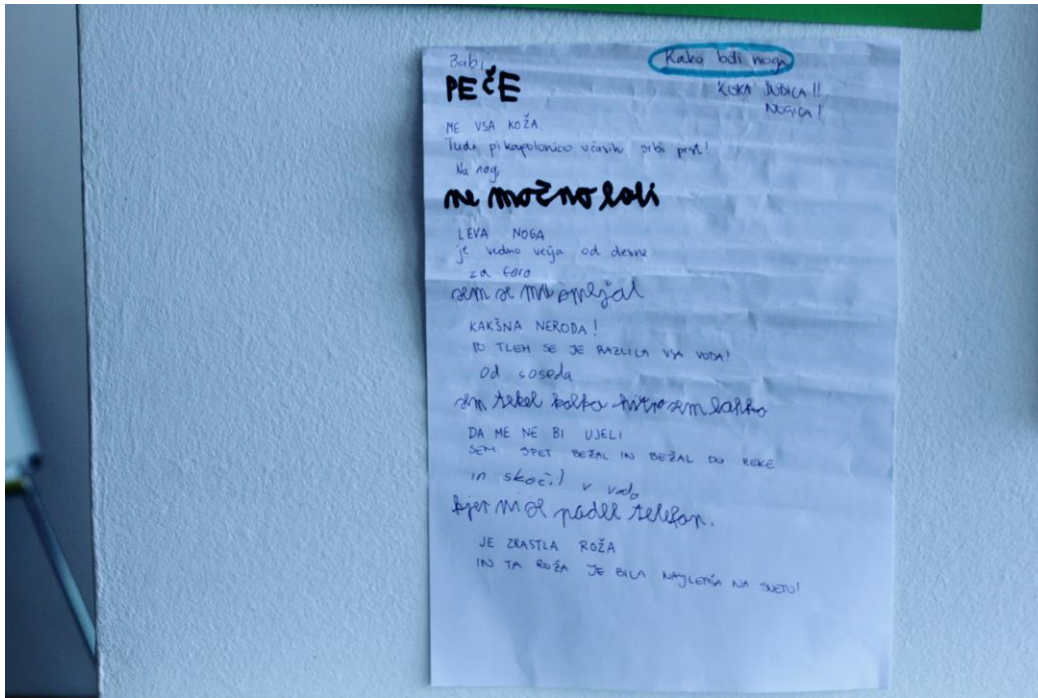 Babi
PEČE
Kako boli noga
KUKA JUDICA !!
NOGICA !
ME VSA KOŽA.
Tudi pikapolonico včasih srbi prst!
Na nogi
me močno boli
LEVA NOGA
je vedno večja od desne
za foro
sem se mu smejal
KAKŠNA NERODA !
PO TLEH SE JE RAZLILA VSA VODA!
Od soseda
sem tekel kolko hitro sem lahko
DA ME NE BI UJELI
SEM SPET BEŽAL IN BEŽAL DO REKE
in skočil v vodo
kjer mi je padel telefon.
JE ZRASTLA ROŽA
IN TA ROŽA JE BILA NAJLEPŠA NA SVETU!